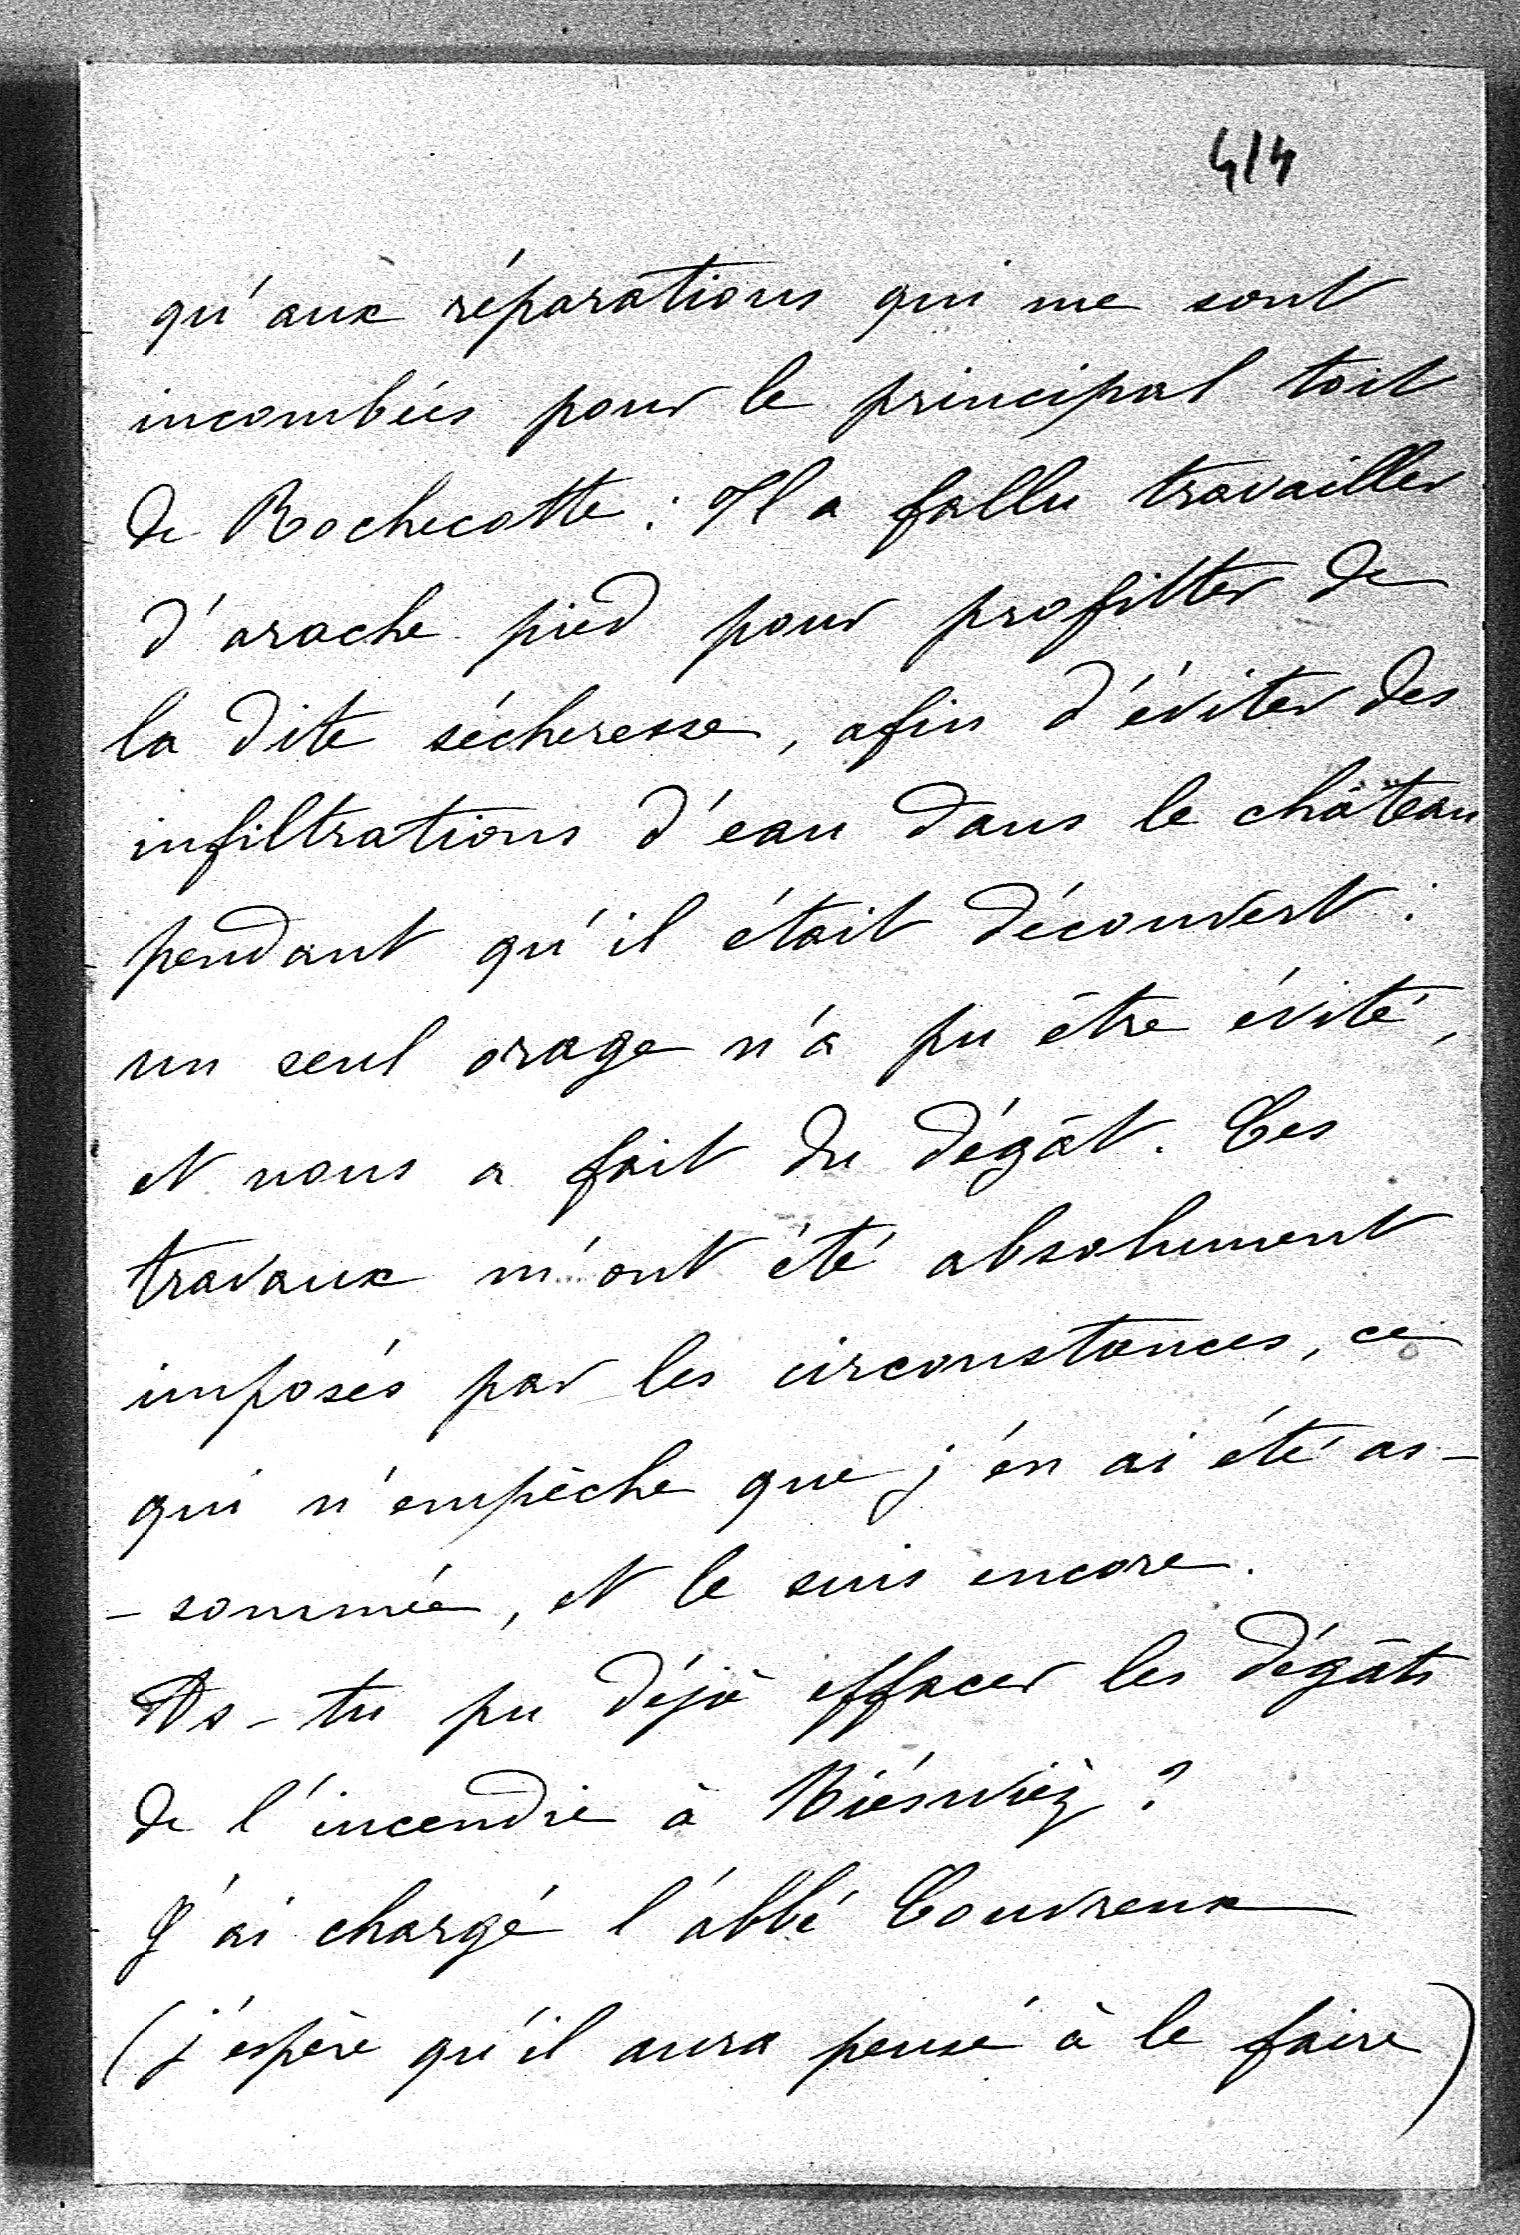 414
qu'aux réparations qui me sont
incombées pour le principal toit
de Rochecotte : Il a fallu travailler
d'arache pied pour profitter de
la dite sécheresse, afin d'éviter des
infiltrations d'eau dans le château
pendant qu'il était découvert :
un seul orage n'a pu être évité,
et nous a fait du dégât. Ces
travaux m'ont été absolument
imposés par les circonstances, ce
qui n'empêche que j'en ai été as-
-sommée, et le suis encore.
As-tu pu déjà effacer les dégâts
de l'incendie à Niéswiéz ?
J'ai chargé l'abbé Couvreux
(j'espère qu'il aura pensé à le faire)